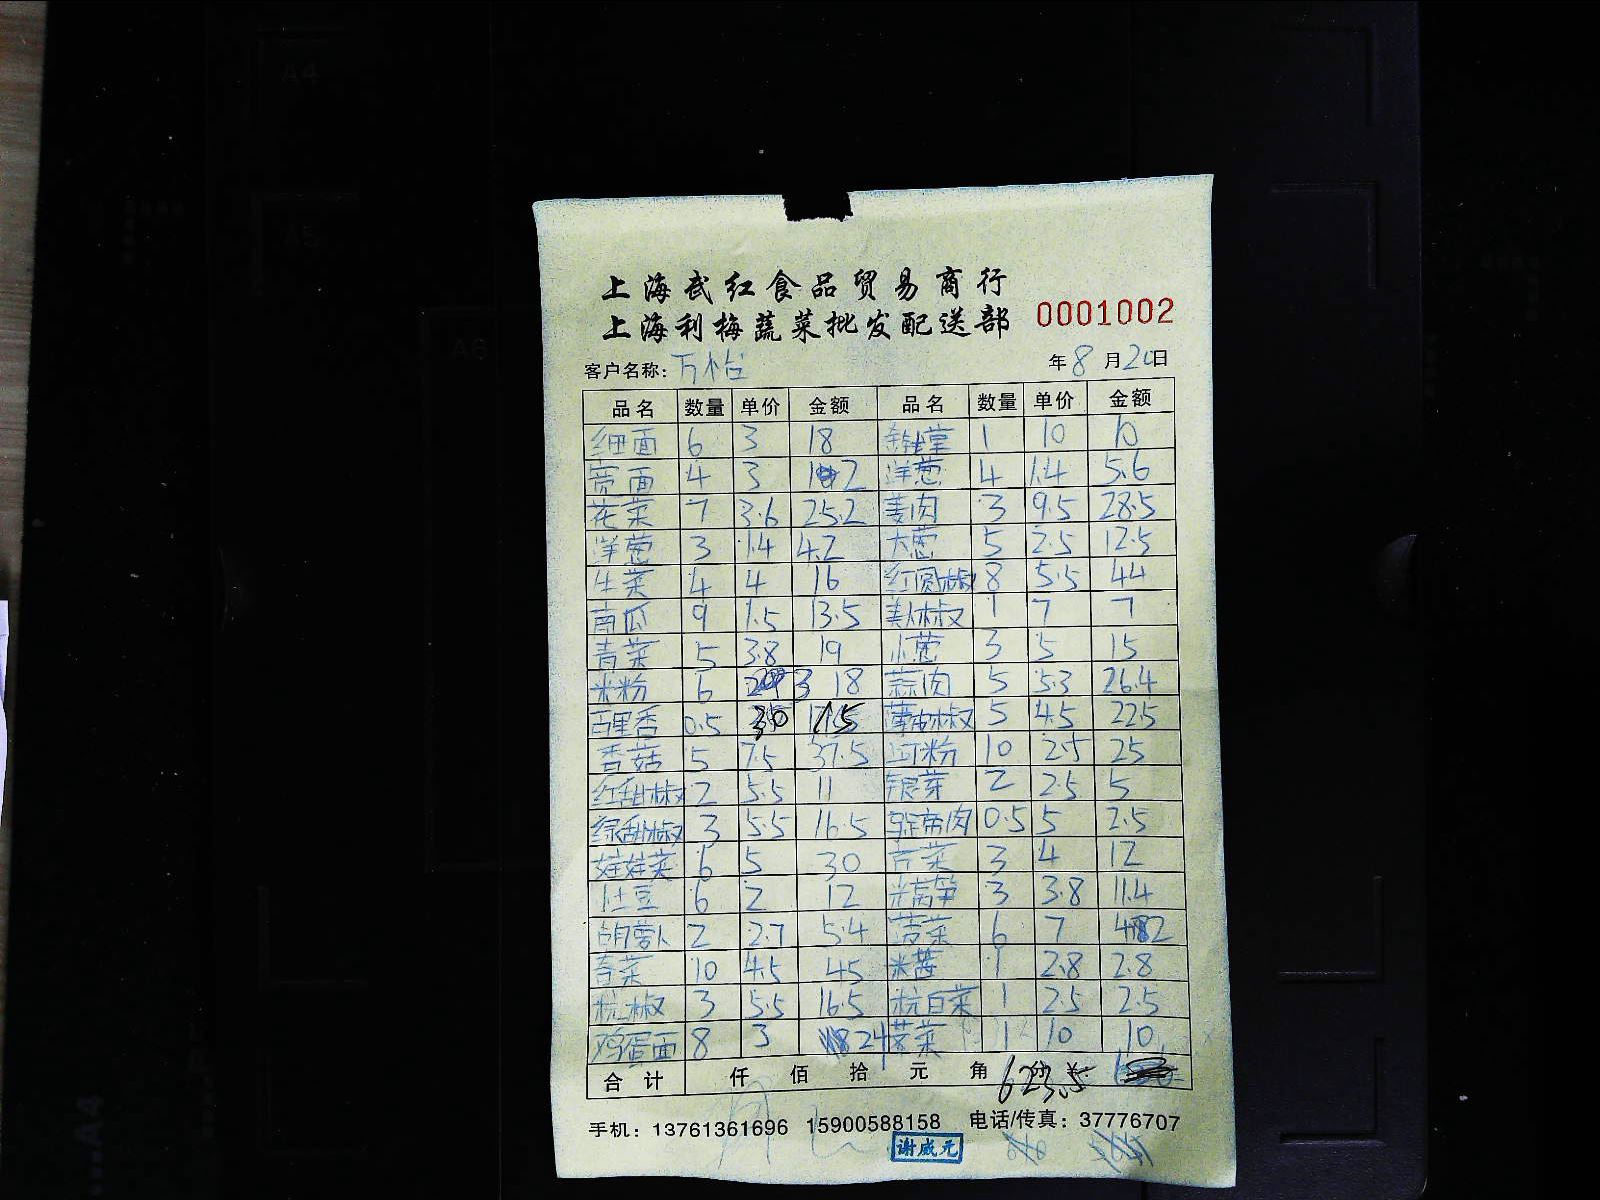 上海武红食品贸易商行
上海利梅蔬菜批发配送部 0001002
客户名称：万怡 年8月20日
品名 数量 单价 金额 品名 数量 单价 金额
细面 6 3 18 1 10 10
宽面 4 3 12 洋葱 4 1.4 5.6
花菜 7 3.6 25.2 姜肉 3 9.5 28.5
洋葱 3 1.4 4.2 大葱 5 2.5 12.5
生菜 4 4 16 红圆椒 8 5.5 44
南瓜 9 1.5 13.5 美人椒 1 7 7
青菜 5 3.8 19 小葱 3 5 15
米粉 6 3 18 蒜肉 5 5.3 26.4
百里香 0.5 30 15 薄皮椒 5 4.5 22.5
香菇 5 7.5 37.5 河粉 10 2.5 25
红甜椒 2 5.5 11 银芽 2 2.5 5
绿甜椒 3 5.5 16.5 0.5 5 2.5
娃娃菜 6 5 30 芹菜 3 4 12
土豆 6 2 12 莴笋 3 3.8 11.4
白萝卜 2 2.7 5.4 菠菜 6 7 42
青菜 10 4.5 45 1 2.8 2.8
杭椒 3 5.5 16.5 杭白菜 1 2.5 2.5
鸡蛋面 8 3 24 1 10 10
合计 仟 佰 拾 元 角 分 ¥: 623.5
手机：13761361696 15900588158 电话/传真：37776707
谢成元